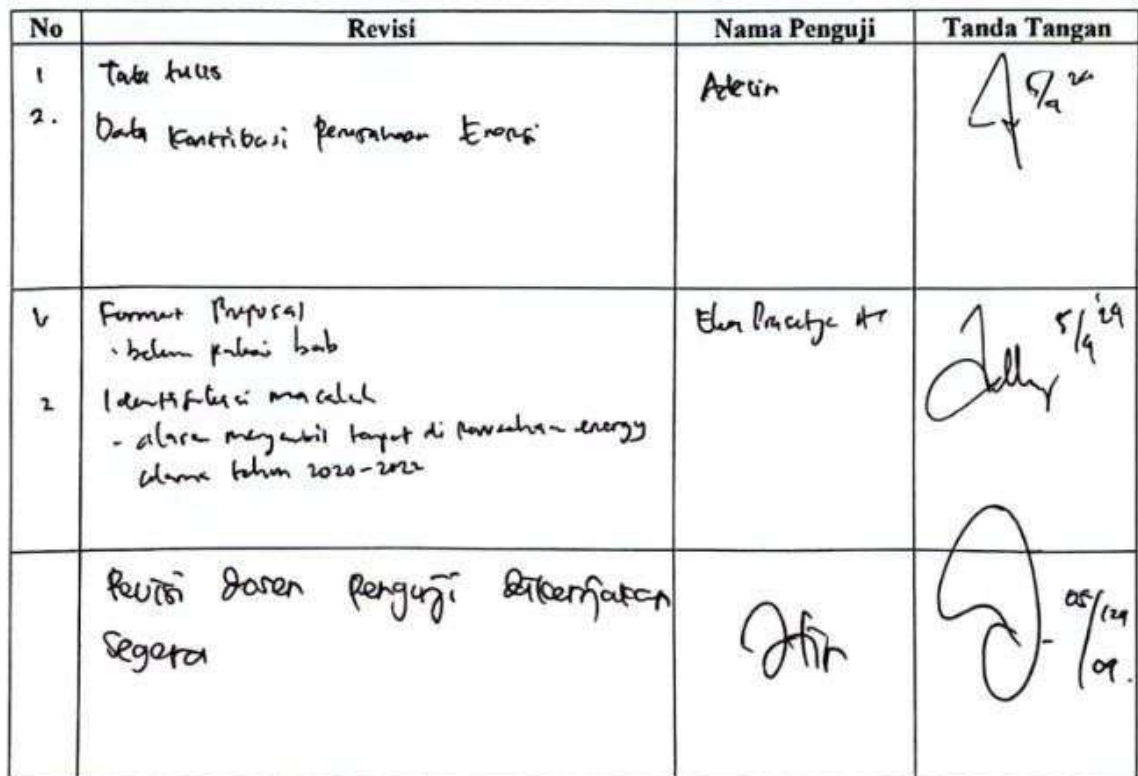 No Revisi Nama Penguji Tanda Tangan
1 Tata tulis
2. Data Kontribusi Perusahaan Energi
5/9 24
1 Format Proposal
- belum pakai bab
2 Identifikasi masalah
- alasan mengambil tempat di perusahaan energy
selama tahun 2020-2022
Eka Prasetya
5/9 '24
Revisi dosen penguji dikerjakan
segera
05/09